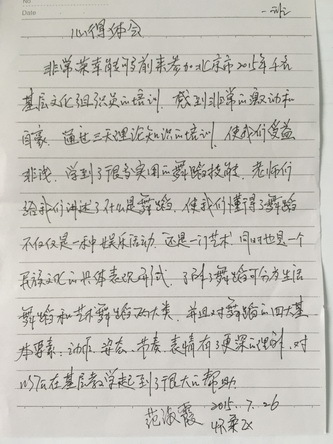 No
Date
一班
心得体会
非常荣幸能够前来参加北京市2015年千名
基层文化组织员的培训，感到非常的激动和
自豪。通过三天理论知识的培训，使我们受益
非浅，学到了很多实用的舞蹈技能，老师们
给我们讲述了什么是舞蹈，使我们懂得了舞蹈
不仅仅是一种娱乐活动，还是一门艺术，同时也是一个
民族文化的具体表现形式，了解了舞蹈可分为生活
舞蹈和艺术舞蹈两大类，并且对舞蹈的四大基
本要素，动作、姿态、节奏、表情有了更深的了解，对
以后在基层教学起到了很大的帮助。
范淑霞 2015.7.26
怀柔区